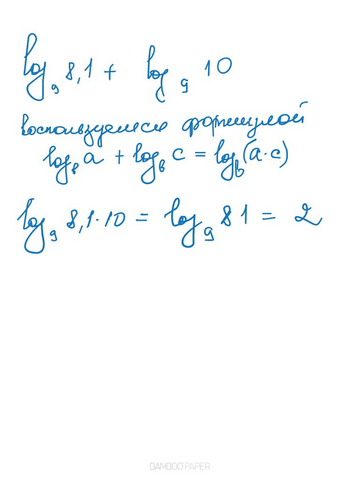 log₉ 8,1 + log₉ 10
воспользуемся формулой
log_b a + log_b c = log_b (a·c)
log₉ 8,1·10 = log₉ 81 = 2
BAMBOO PAPER